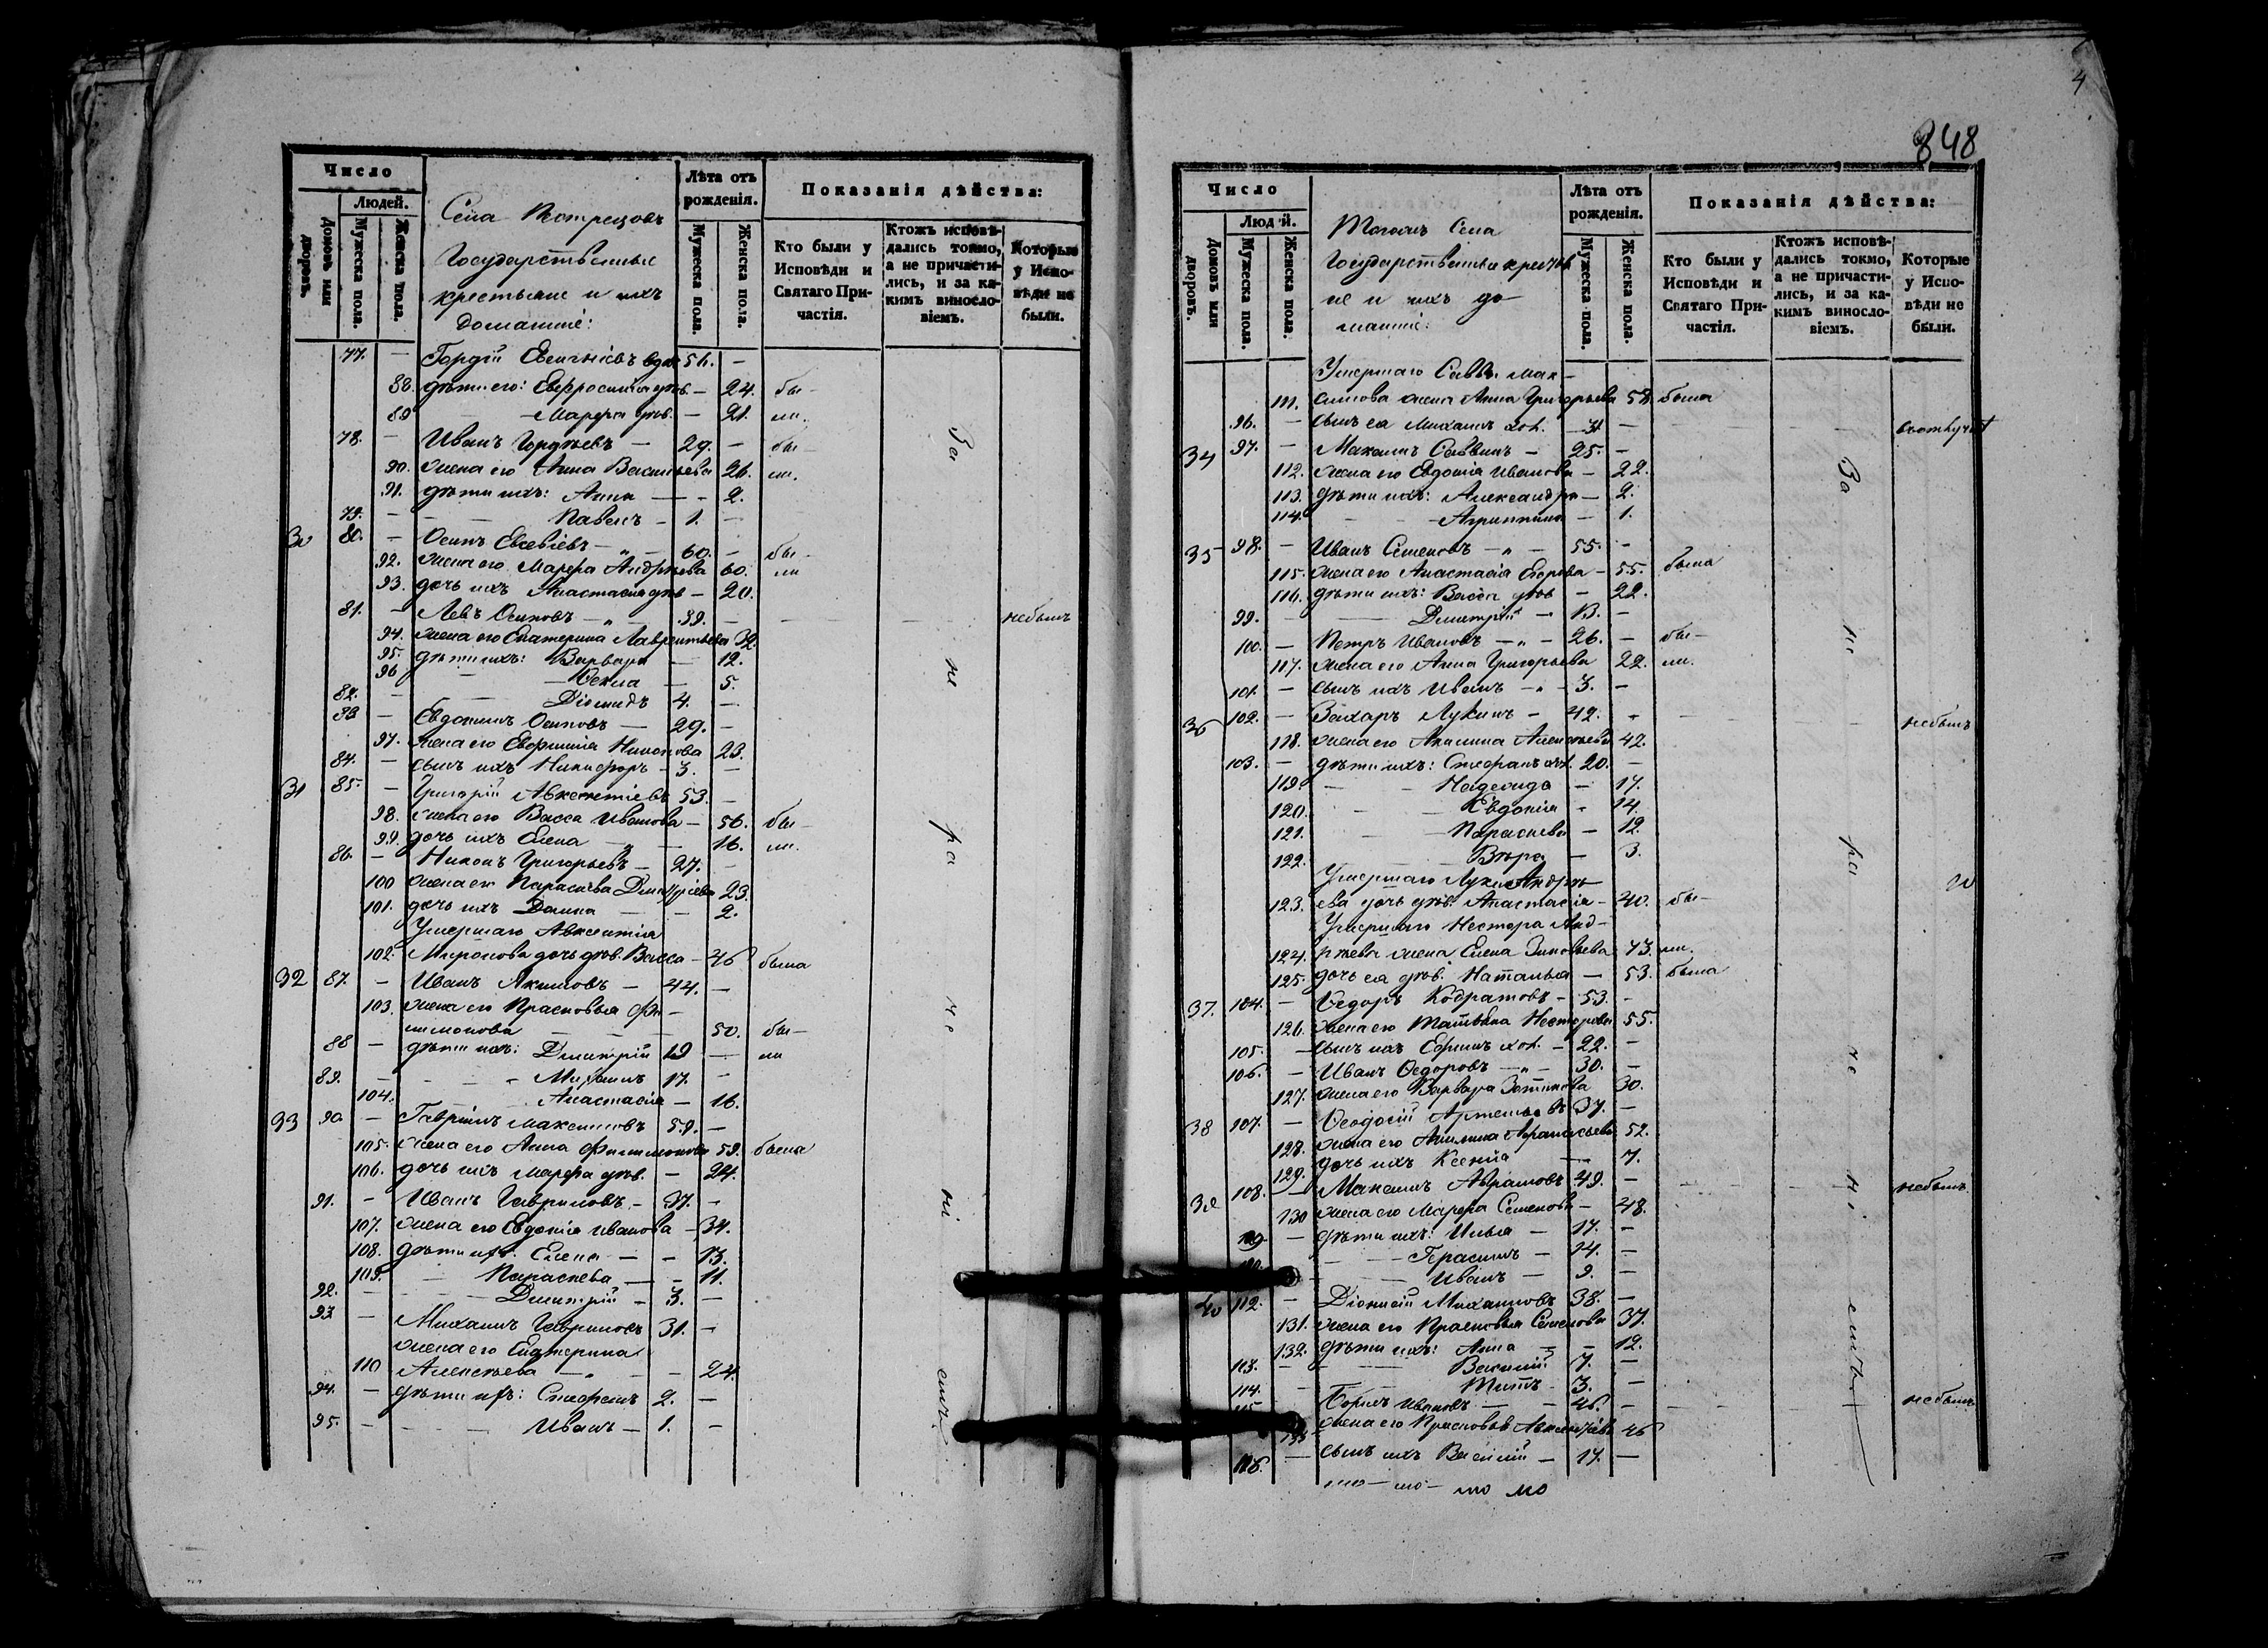 Число
Людей.
Домовъ или дворовъ.
Мужеска пола.
Женска пола.
Села
Государственные
крестьяне и ихъ
домашніе:
Лѣта отъ рожденія.
Мужеска пола.
Женска пола.
Показанія дѣйства:
Кто были у Исповѣди и Святаго Причастія.
Ктожъ исповѣдались токмо, а не причастились, и за какимъ винословіемъ.
Которые у Исповѣди не были.
77. — Гордій вдов 51. —
88. дѣти его: Евфросинія дѣв. — 24. бы-
89 — Марфа дѣв. — 21. ли.
78. — Иванъ Гордѣевъ — 29. — бы-
90. жена его Анна Васильева 26. ли.
91. дѣти ихъ: Анна — - 2.
79. — — Павелъ — 1. —
30 80. — Осипъ Евсевіевъ — „ — 60. — бы-
92. жена его Марфа Андрѣева 60. ли
93. дочь ихъ Анастасія дѣв — 20.
81. — Левъ Осиповъ — „ — 39. — — — небылъ
94. жена его Екатерина Лаврентьева 39.
95. дѣти ихъ: Варвара — 12.
96 — Ѳекла — 5.
82. — — Діомидъ 4. —
83 — Евдокимъ Осиповъ — 29. —
97. жена его Никонова 23.
84. — сынъ ихъ Никифоръ — 3. —
31 85. — Григорій Авксентіевъ 53. —
98. жена его Васса Иванова — 56. бы-
99. дочь ихъ Елена — „ — 16. ли.
86. — Никонъ Григорьевъ — 27. —
100 жена его Параскева Димитріева 23.
101. дочь ихъ Домна — — 2.
Умершаго Авксентія
102. Миронова дочь дѣв. Васса — 46 была
32 87. — Иванъ Акимовъ — 44. —
103. жена его Прасковья Фи-
лимонова — — 50. бы-
88 — дѣти ихъ: Димитрій 19 — ли
89. — — Михаилъ 17. —
104. — Анастасія — 16.
33 90 — Гавріилъ Максимовъ 59. —
105. жена его Анна Филимонова 59. была
106. дочь ихъ Марфа дѣв. — 24.
91. — Иванъ Гавриловъ — 37. —
107. жена его Евдокія Иванова — 34.
108. дѣти ихъ: Елена — — 13.
109. — Параскева — — 11.
92. — — Димитрій — 3. —
93 — Михаилъ Гавриловъ 31. —
жена его Екатерина
110 Алексѣева — „ — 24.
94. — дѣти ихъ: Стефанъ 2. —
95. — — Иванъ — 1. —
За не ра че ні емъ
4
848
Число
Людей.
Домовъ или дворовъ.
Мужеска пола.
Женска пола.
Тогожъ Села
Государственные крестья-
не и ихъ до-
машніе:
Лѣта отъ рожденія.
Мужеска пола.
Женска пола.
Показанія дѣйства:
Кто были у Исповѣди и Святаго Причастія.
Ктожъ исповѣдались токмо, а не причастились, и за какимъ винословіемъ.
Которые у Исповѣди не были.
Умершаго Саввы Мак-
111. симова жена Анна Григорьева 58. была
96. — сынъ ея Михаилъ хол. —
34 97. — Максимъ Саввинъ — 25. —
112. жена его Евдокія Иванова — 22.
113. дѣти ихъ: Александра — 2.
114. — Агриппина — 1.
35 98. — Иванъ Семеновъ — „ — 55. —
115. жена его Анастасія Егорова — 55. была
116. дѣти ихъ: Васса дѣв — 22.
99. — — Димитрій — 13. —
100. — Петръ Ивановъ — „ — 26. — бы-
117. жена его Анна Григорьева 22. ли.
101. — сынъ ихъ Иванъ — „ — 3. —
36 102. — Захаръ Лукинъ — 42. — — — небылъ
118. жена его Акилина Алексѣева 42.
103. — дѣти ихъ: Стефанъ хол. 20. —
119. — Надежда — 17.
120. — Евдокія — 14.
121. — Параскева — 12.
122. — Вѣра — 3.
Умершаго Луки Андрѣ-
123. ева дочь дѣв. Анастасія — 40. бы-
Умершаго Нестора Анд-
124. рѣева жена Елена Зиновьева 73. ли.
125. дочь ея дѣв. Наталья — 53. была
37. 104. — Ѳедоръ Кодратовъ — 53. —
126. жена его Татьяна Нестерова 55.
105. — сынъ ихъ Ефимъ хол. — 22. —
106. — Иванъ Ѳедоровъ — „ — 30. —
127. жена его Варвара 30.
38 107. — Ѳеодосій Артемьевъ 37. —
128. жена его Акилина Афанасьева 52.
129. дочь ихъ Ксенія — 7.
39 108. — Максимъ Абрамовъ 49. — — — небылъ
130 жена его Марфа Семенова — 48.
109. — дѣти ихъ: Илья — 17. —
— Герасимъ — 14. —
— Иванъ — 9. —
40 112. — Діонисій Михаиловъ 38. —
131. жена его Прасковья Семенова 37.
132. дѣти ихъ: Анна — — 12.
113. — — Василій 7. —
114. — — Титъ 3. —
Ивановъ — 46. — — — небылъ
жена его Прасковья 46
116. — сынъ ихъ Василій — 17. —
За не ра че ні емъ